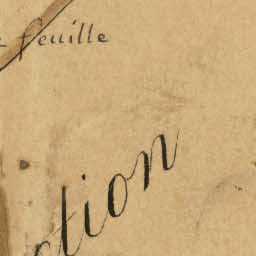 feuille
ction